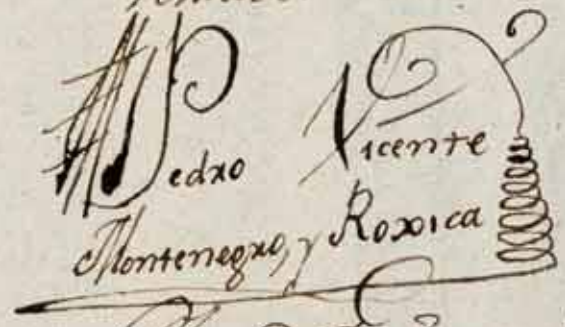 Pedro Vicente
Montenegro, y Roxica